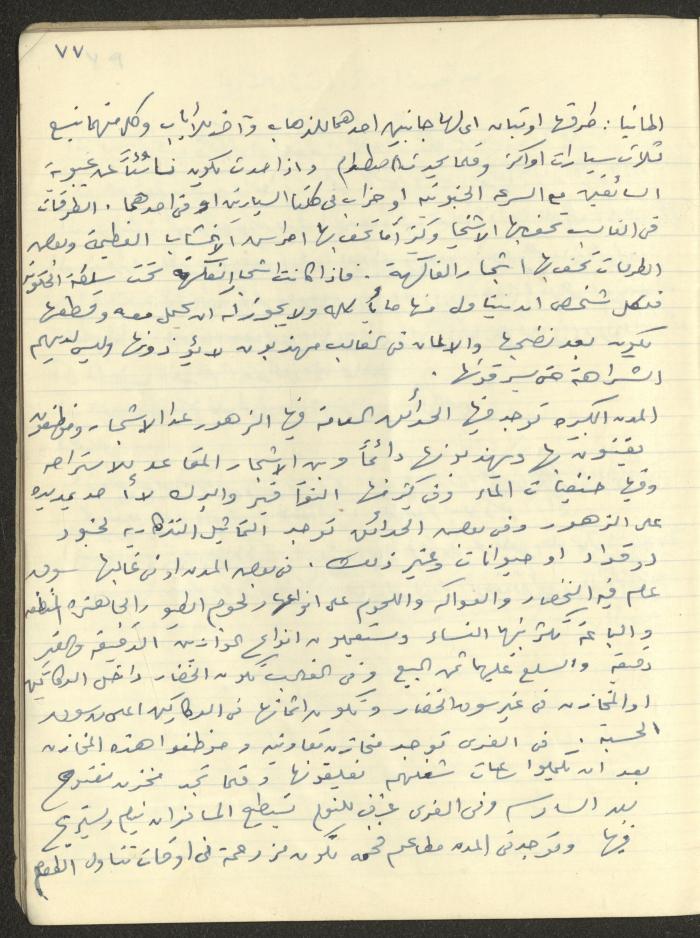 ٧٧
المانيا: طرقها اوتبان اي لها جانبين احدهما للذهاب وآخر للأياب وكل منهما يتسع
لثلاث سيارات او اكثر وقلما يحدث اصطدام واذا حدث يكون ناشئاً عن غيبوبة
السائقين مع السرعه الجنونيه او خراب في كلتا السيارتين او في احدهما. الطرقات
في الغالب تحف بها الاشجار وكثيراً ما تحف بها احراس الاخشاب العظيمة وبعض
الطرقات تحف بها اشجار الفاكهة. فاذا كانت اشجار الفاكهة تحت سلطة الحكومة
فلكل شخص ان يتناول منها ما يأكله ولا يجوز له ان يحمل معه وقطعها
يكون بعد نضجها والالمان في الغالب مهذبون لا يؤذونها وليس لديهم
الشراهة حتى يسرقونها.
المدن الكبيره توجد فيها الحدائق العامة فيها الزهور عدا الاشجار وموظفون
يعتنون بها ويهذبونها دائماً وبين الاشجار المقاعد للاستراحه
وفيها حنفيات الماء وفي كثير منها النوافير والبرك لا احد يمد يده
على الزهور وفي بعض الحدائق توجد التماثيل التذكاريه لجنود
او قواد او حيوانات وغير ذلك. في بعض المدن او في غالبها سوق
عام فيه الخضار والفواكه واللحوم على انواعها ولحوم الطيور الجاهزه المنظفه
والباعة تكثر فيها النساء ويستعملون انواع الموازين الدقيقة والغير
دقيقة والسلع عليها ثمن البيع وفي الغالب تكون الخضار داخل الدكاكين
او المخازن في غير سوق الخضار وتكون اثمانها في الدكاكين اعلى من سوق
الحسبة. في القرى توجد مخازن تعاونيه وموظفوا هذه المخازن
بعد ان تكملوا ساعات شغلهم يغلقونها وقلما تجد مخزن مفتوح
بعد السادسه وفي القرى غرف للنوم يستطيع المسافر ان ينام ويستريح
فيها وتوجد في المدن مطاعم فخمه تكون مزدحمة في اوقات تناول الطعام